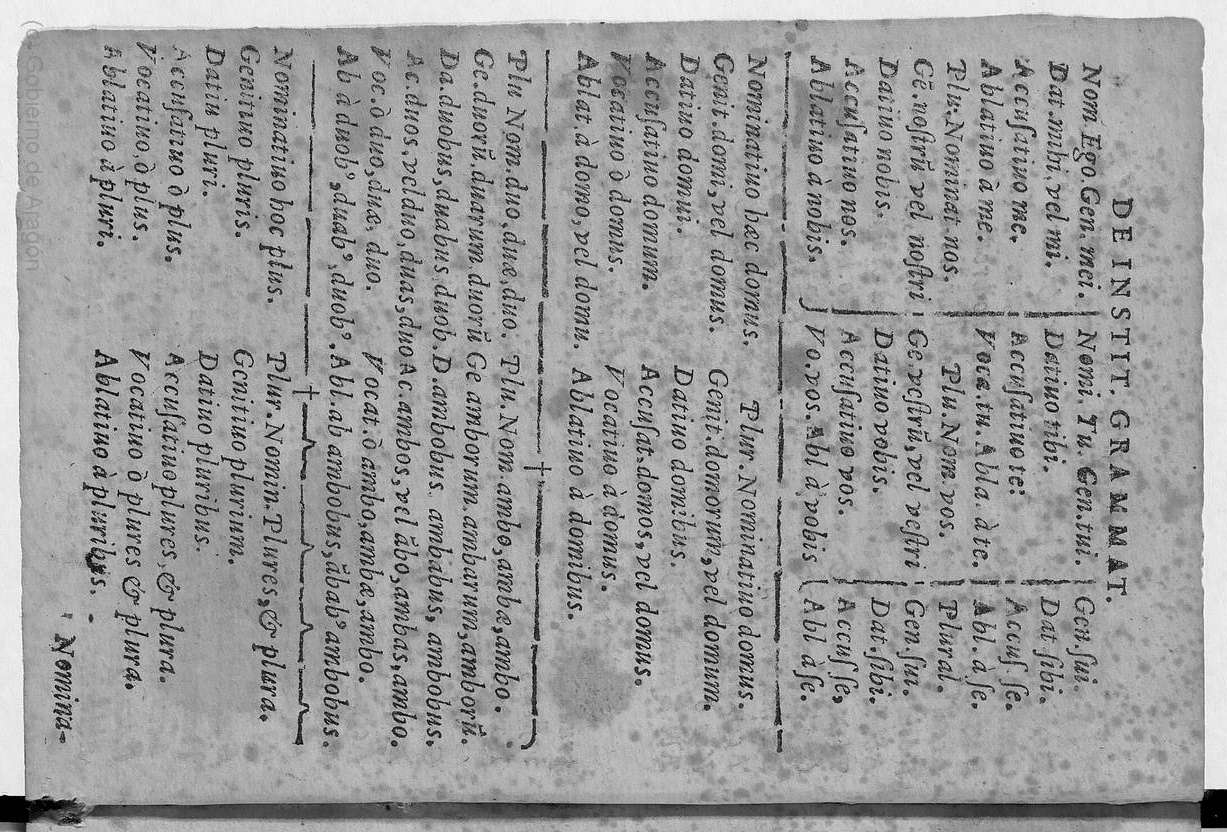 DE INSTIT. GRAMMAT.
Nom Ego. Gen. mei. Nomi. Tu. Gen. tui. Gen. ſui.
Dat. mihi, vel mi. Datiuo tibi. Dat ſibi.
Accuſatiuo me. Accuſatiuo te: Accuſ ſe.
Ablatiuo à me. Voca. tu. Abla. à te. Abl. à ſe.
Plu. Nominat. nos. Plu. Nom. vos. Plural.
Gē. noſtrū vel noſtri Ge. veſtrū, vel veſtri Gen. ſui.
Datiuo nobis. Datiuo vobis. Dat. ſibi.
Accuſatiuo nos. Accuſatiuo vos. Accuſ ſe,
Ablatiuo à nobis. Vo. vos. Abl à vobis Abl à ſe.
Nominatiuo hæc domus. Plur. Nominatiuo domus.
Genit. domi, vel domus. Genit. domorum, vel domum.
Datiuo domui. Datiuo domibus.
Accuſatiuo domum. Accuſat. domos, vel domus.
Vocatiuo ò domus. Vocatiuo à domus.
Ablat à domo, vel domu. Ablatiuo à domibus.
Plu Nom. duo, duæ, duo. Plu. Nom. ambo, ambæ, ambo.
Ge. duorū. duarum. duorū Ge amborum. ambarum, amborū.
Da. duobus, duabus duob. D. ambobus. ambabus, ambobus.
Ac. duos, vel duo, duas, duo Ac. ambos, vel ābo, ambas, ambo.
Voc. ò duo, duæ, duo. Vocat. ò ambo, ambæ, ambo.
Ab à duobꝰ, duabꝰ, duobꝰ. Abl. ab ambobus, ābabꝰ ambobus.
Nominatiuo hoc plus. Plur. Nomin. Plures, & plura.
Genitiuo pluris. Genitiuo plurium.
Datiu pluri. Datiuo pluribus.
Accuſatiuo ò plus. Accuſatiuo plures, & plura.
Vocatiuo, ò plus. Vocatiuo ò plures & plura.
Ablatiuo à pluri. Ablatiuo à pluribus.
Nomina-
© Gobierno de Aragón